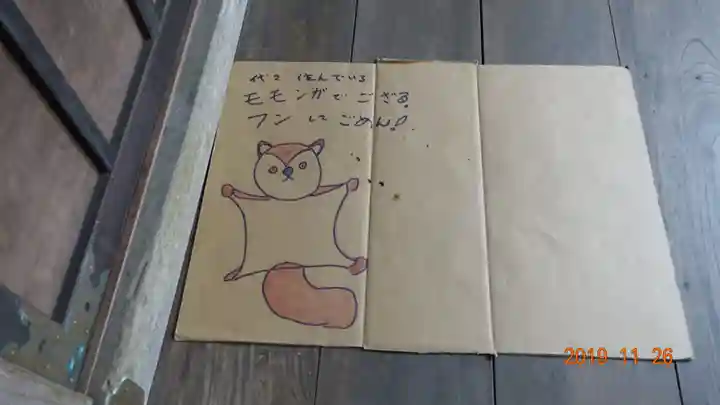 代々住んでいる
モモンガでござる!
フンしてごめん!
2019 11 26